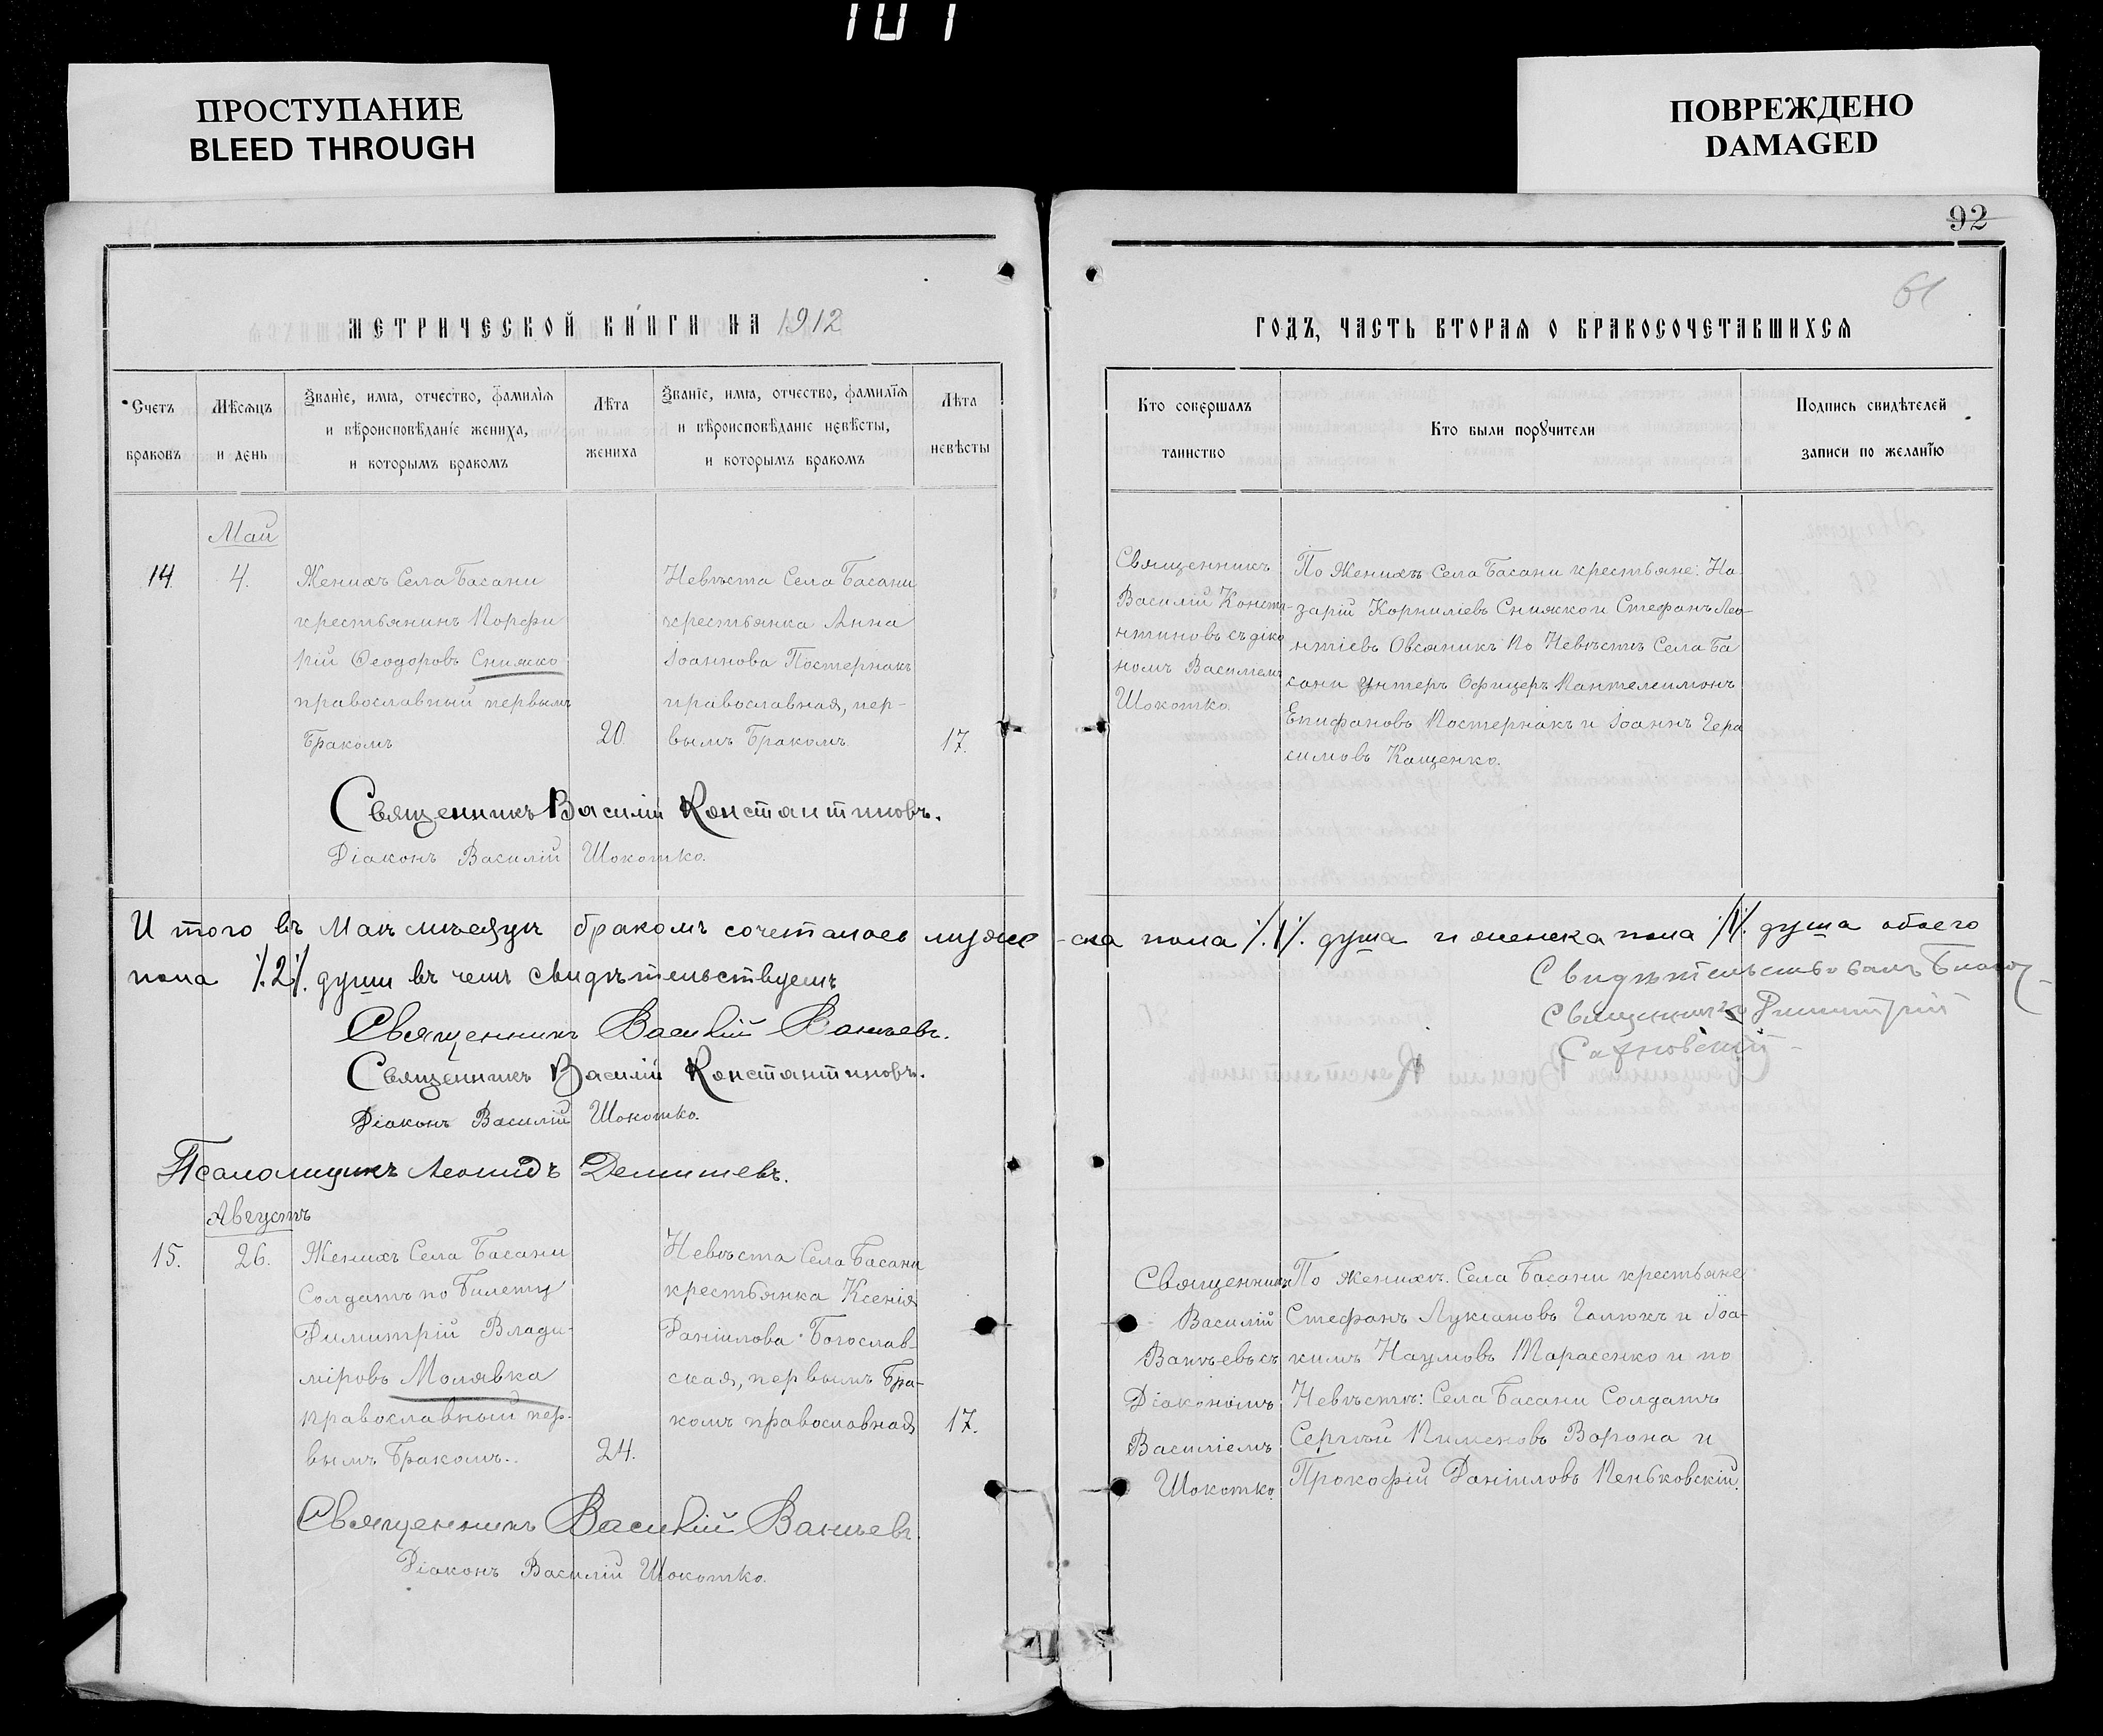 101
ПРОСТУПАНИЕ
BLEED THROUGH
ПОВРЕЖДЕНО
DAMAGED
92
61
МЕТРИЧЕСКОЙ КНИГИ НА 1912
ГОДЪ, ЧАСТЬ ВТОРАЯ О БРАКОСОЧЕТАВШИХСЯ
Счетъ
браковъ
Мѣсяцъ
и день
Званіе, имя, отчество, фамилія
и вѣроисповѣданіе жениха,
и которымъ бракомъ
Лѣта
жениха
Званіе, имя, отчество, фамилія
и вѣроисповѣданіе невѣсты,
и которымъ бракомъ
Лѣта
невѣсты
Кто совершалъ
таинство
Кто были поручители
Подпись свидѣтелей
записи по желанію
Май
14.
4.
Женихъ Села Басани
крестьянинъ Порфи
рій Ѳеодоровъ Снижко
православный первымъ
бракомъ
20.
Невѣста Села Басани
крестьянка Анна
Іоаннова Постернакъ
православная, пер-
вымъ бракомъ.
17.
Священникъ
Василій Конста-
нтиновъ съ діако
номъ Василіемъ
Шокотко.
По Женихѣ Села Басани крестьяне: На
зарій Корниліевъ Снижко и Стефанъ Лео-
нтіевъ Овсяникъ По Невѣстѣ Села Ба
сани унтеръ Офицеръ Пантелеимонъ
Епифановъ Постернакъ и Іоаннъ Гера
симовъ Кащенко.
Священникъ Василій Константиновъ.
Діаконъ Василій Шокотко.
Итого въ Маѣ мѣсяцѣ бракомъ сочеталось муже-ска пола ./.1/. душа и женска пола ./.1/. душа обоего
пола ./.2/. души въ чемъ свидѣтельствуемъ
Свидѣтельствовалъ Благоч-
Священникъ Василій Ваньевъ.
Священникъ Димитрій
Священникъ Василій Константиновъ.
Діаконъ Василій Шокотко.
Псаломщикъ Леонидъ
Августъ
15.
26.
Женихъ Села Басани
Солдатъ по билету
Димитрій Влади-
міровъ Молявка
православный пер-
вымъ бракомъ.
24.
Невѣста Села Басани
крестьянка Ксенія
Даніилова Богослав-
ская, первымъ бра-
комъ православная
17.
Священникъ
Василій
Ваньевъ съ
Діакономъ
Василіемъ
Шокотко.
По женихѣ. Села Басани крестьяне
Стефанъ Лукіановъ Галюкъ и Іоа-
кимъ Наумовъ Тарасенко и по
Невѣстѣ: Села Басани Солдатъ
Сергѣй Пименовъ Ворона и
Прокофій Даніиловъ Пеньковскій.
Священникъ Василій Ваньевъ.
Діаконъ Василій Шокотко.